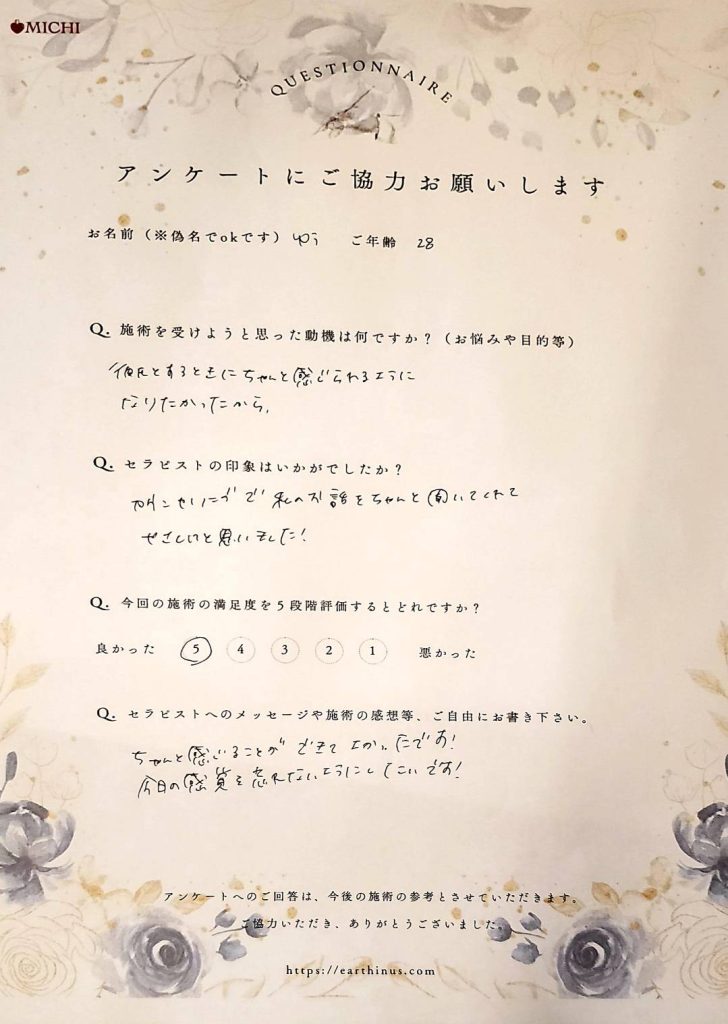 MICHI
QUESTIONNAIRE
アンケートにご協力お願いします
お名前（※偽名でokです） ゆう ご年齢 28
Q. 施術を受けようと思った動機は何ですか？（お悩みや目的等）
彼氏とするときにちゃんと感じられるように
なりたかったから。
Q. セラピストの印象はいかがでしたか？
で私のお話をちゃんと聞いてくれて
やさしいと思いました！
Q. 今回の施術の満足度を５段階評価するとどれですか？
良かった 5 4 3 2 1 悪かった
Q. セラピストへのメッセージや施術の感想等、ご自由にお書き下さい。
ちゃんと感じることができてよかったです！
今日の感覚を忘れないようにしたいです！
アンケートへのご回答は、今後の施術の参考とさせていただきます。
ご協力いただき、ありがとうございました。
https://earthinus.com